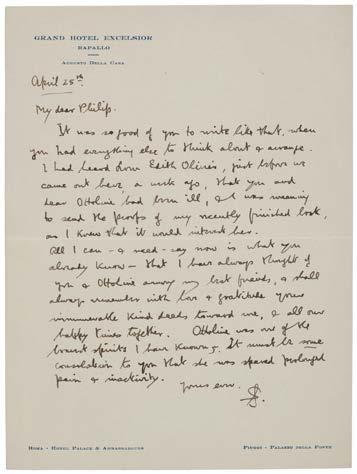 GRAND HOTEL EXCELSIOR
RAPALLO
AUGUSTO DELLA CASA
April 25th.
My dear Philip.
It was so good of you to write like that, when
you had everything else to think about & arrange.
I had heard from Edith Olivier, just before we
came out here, a week ago, that you and
dear Ottoline had been ill, & I was meaning
to send the proofs of my recently finished book,
as I knew that it would interest her.
All I can - & need - say now is what you
already know - that I have always thought of
you & Ottoline among my best friends, & shall
always remember with love & gratitude your
innumerable kind deeds toward me, & all our
happy times together. Ottoline was one of the
bravest spirits I have known. It must be some
consolation to you that she was spared prolonged
pain & inactivity.
Yours ever.
ROMA - HOTEL PALACE & AMBASSADEURS
FIUGGI - PALAZZO DELLA FONTE